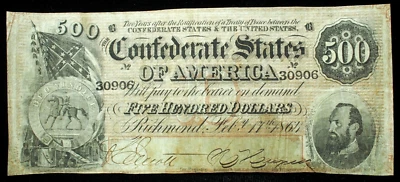 Two Years after the Ratification of a Treaty of Peace between the
CONFEDERATE STATES & THE UNITED STATES,
500
Confederate States
500
No 30906
OF AMERICA
No 30906
Will pay to the bearer on demand
FIVE HUNDRED DOLLARS
Richmond, Feby 17th 1864